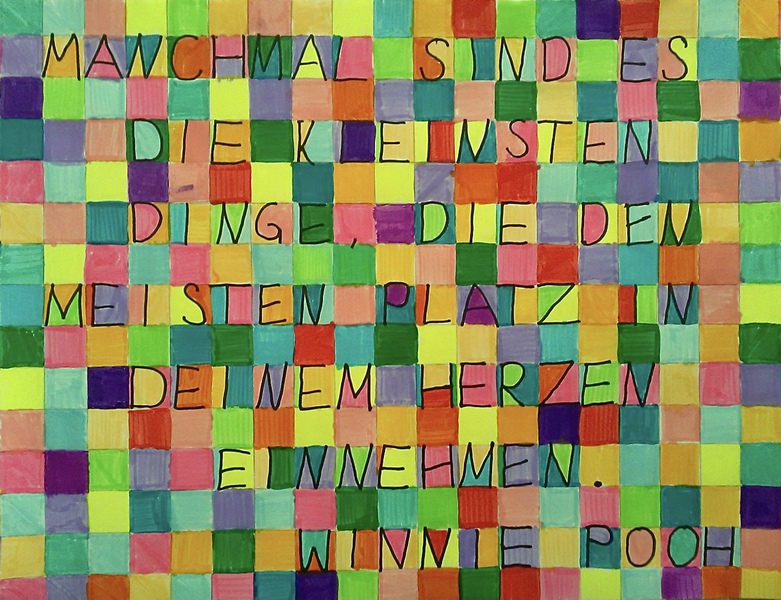 MANCHMAL SIND ES
DIE KLEINSTEN
DINGE, DIE DEN
MEISTEN PLATZ IN
DEINEM HERZEN
EINNEHMEN.
WINNIE POOH